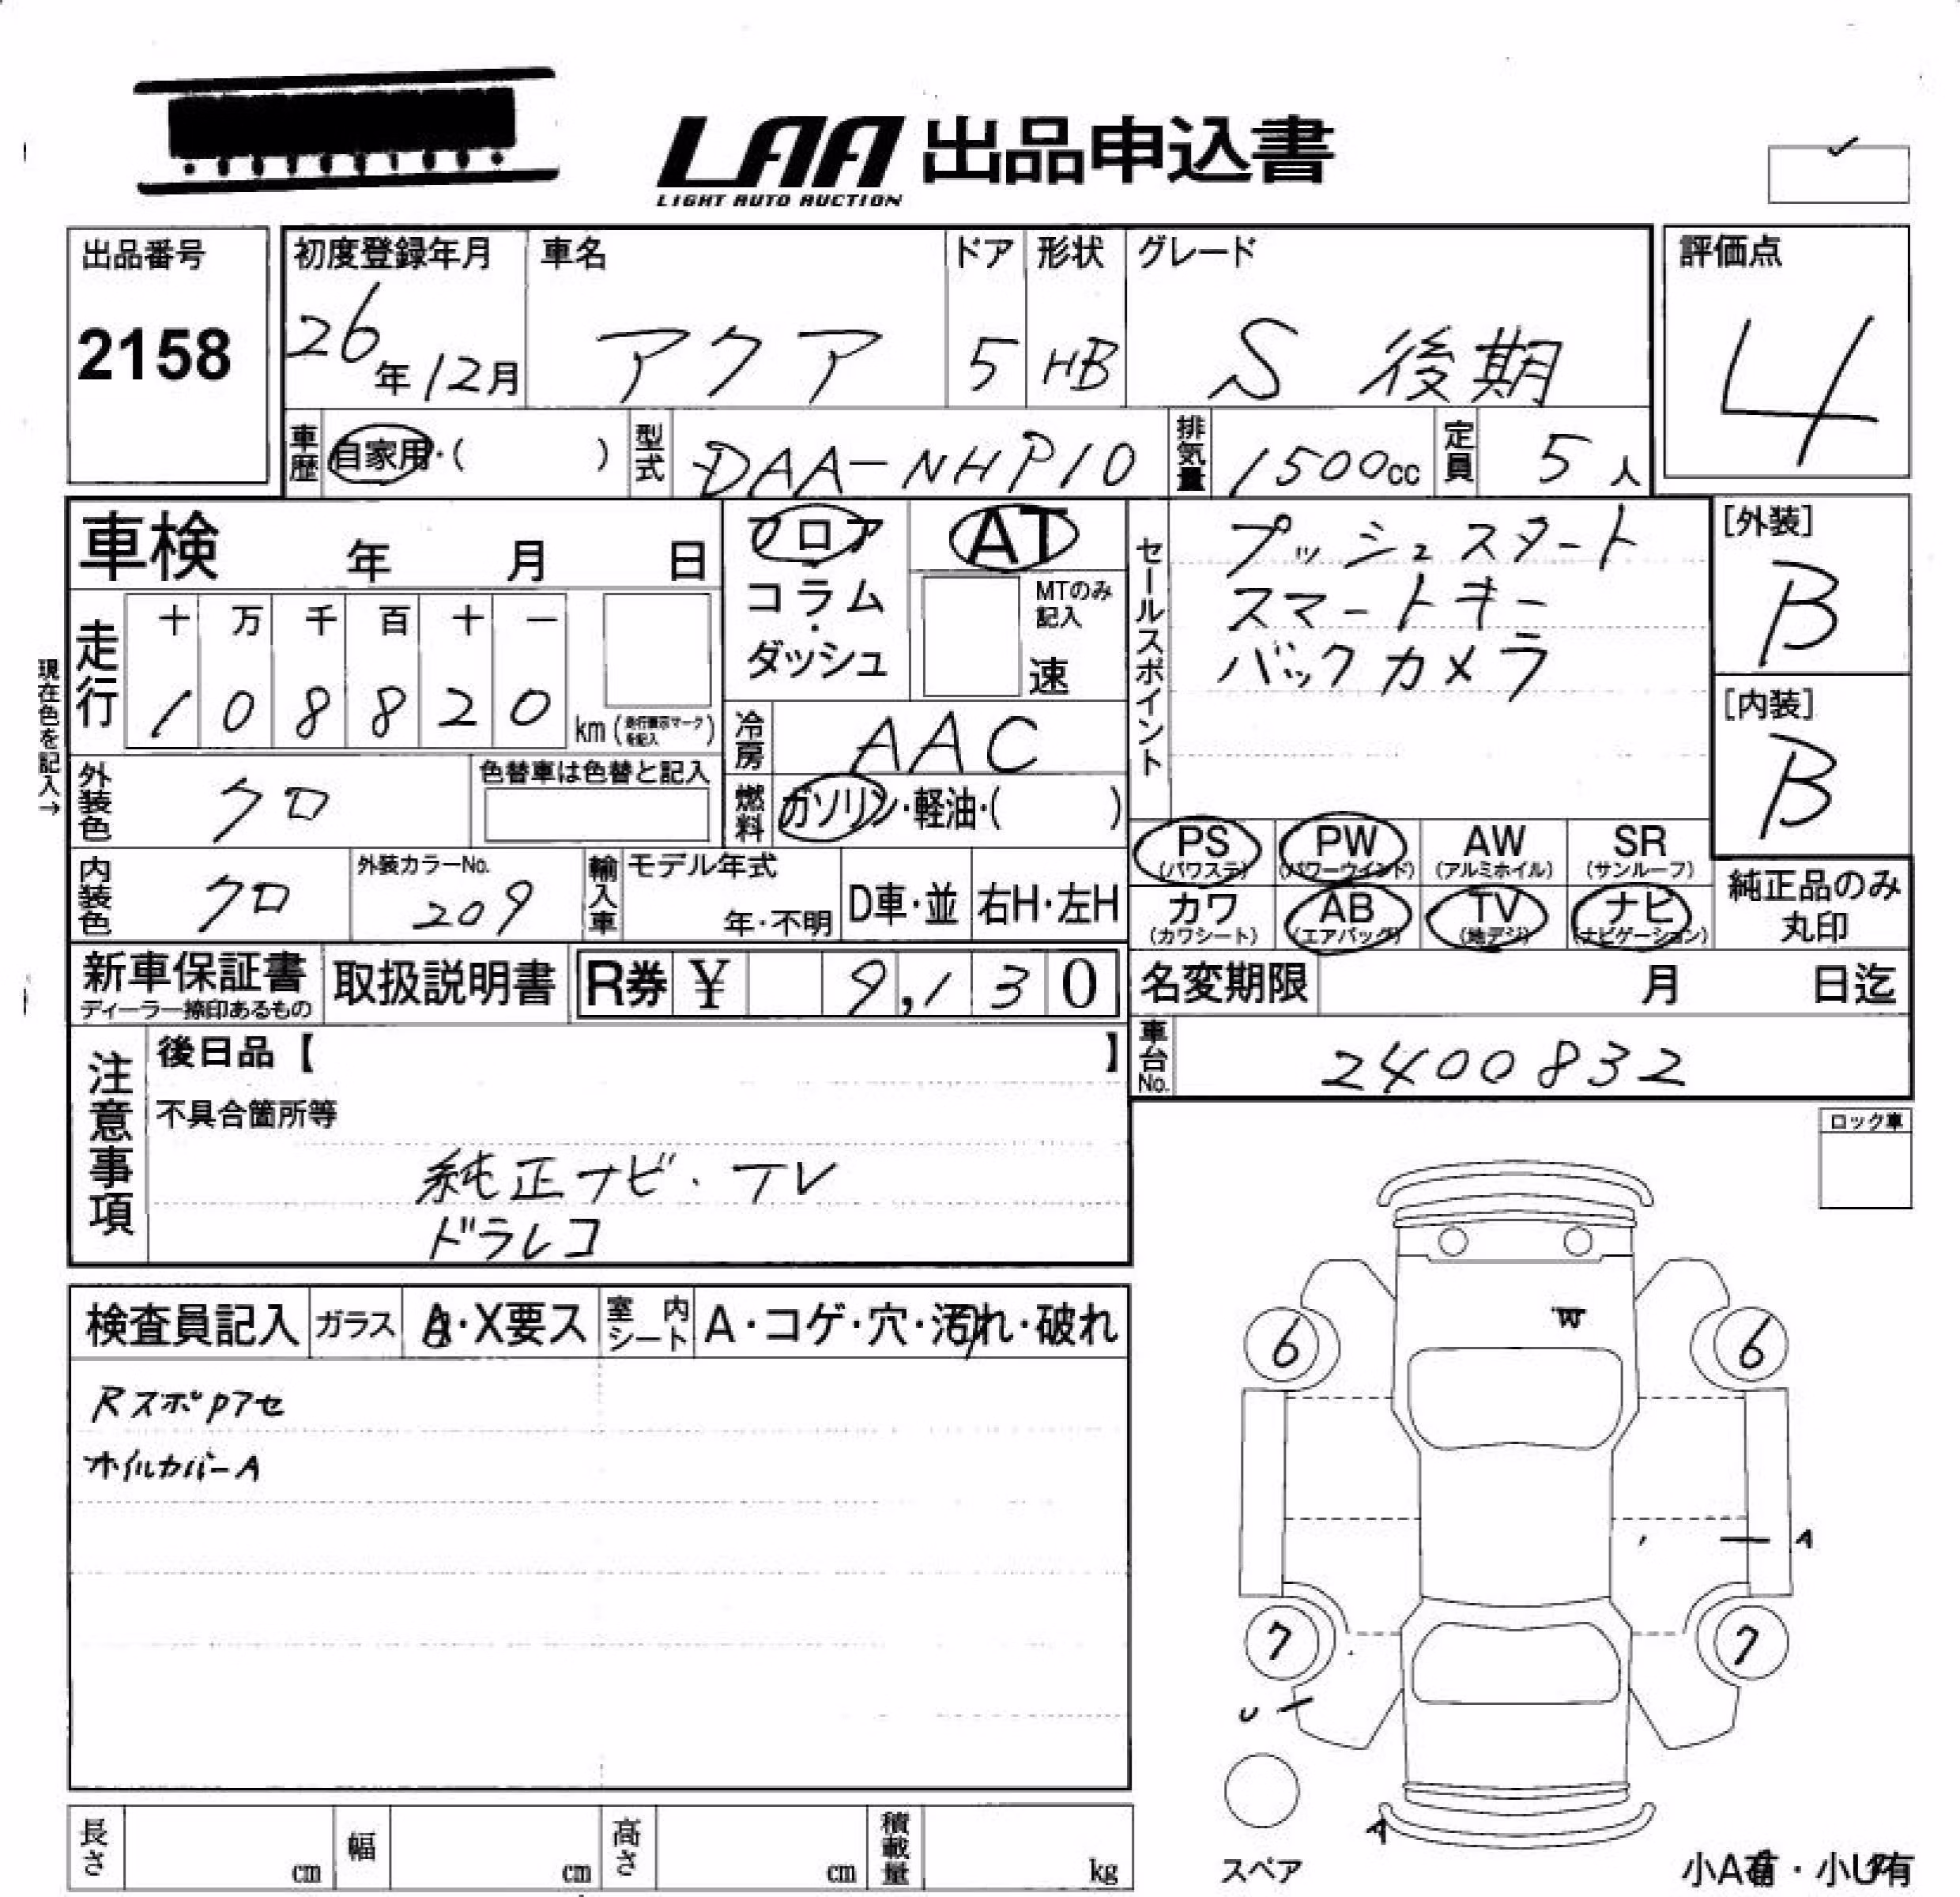 LAA 出品申込書
LIGHT AUTO AUCTION
出品番号
2158
初度登録年月
26年12月
車名
アクア
ドア
5
形状
HB
グレード
S 後期
評価点
4
車歴 自家用・( )
型式 DAA-NHP10
排気量 1500cc
定員 5人
車検 年 月 日
フロア
コラム
・
ダッシュ
AT
MTのみ
記入
速
セールスポイント
プッシュスタート
スマートキー
バックカメラ
[外装]
B
[内装]
B
現在色を記入→
走行
十 万 千 百 十 一
1 0 8 8 2 0
km (走行表示マークを記入)
冷房 AAC
外装色 クロ
色替車は色替と記入
燃料 ガソリン・軽油・( )
PS PW AW SR
(パワステ) (パワーウインド) (アルミホイル) (サンルーフ)
カワ AB TV ナビ
(カワシート) (エアバッグ) (地デジ) (ナビゲーション)
純正品のみ
丸印
内装色 クロ
外装カラーNo.
209
輸入車
モデル年式
年・不明
D車・並
右H・左H
新車保証書
ディーラー捺印あるもの
取扱説明書
R券 ¥ 9,130
名変期限 月 日迄
車台No. 2400832
注意事項
後日品【 】
不具合箇所等
純正ナビ・TV
ドラレコ
ロック車
検査員記入 ガラス A・X要ス 室内シート A・コゲ・穴・汚れ・破れ
RスポPアセ
ホイルカバーA
W
6 6
A
7 7
U
A
スペア
小A有・小U有
長さ cm 幅 cm 高さ cm 積載量 kg